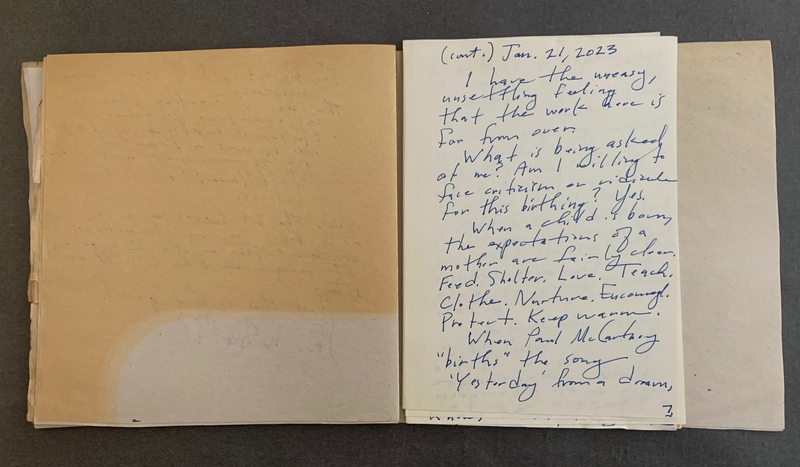 (cont.) Jan. 21, 2023
I have the uneasy,
unsettling feeling
that the work here is
far from over.
What is being asked
of me? Am I willing to
face criticism or ridicule
for this birthing? Yes.
When a child is born,
the expectations of a
mother are fairly clear.
Feed. Shelter. Love. Teach.
Clothe. Nurture. Encourage.
Protect. Keep warm.
When Paul McCartney
"births" the song
'Yesterday' from a dream,